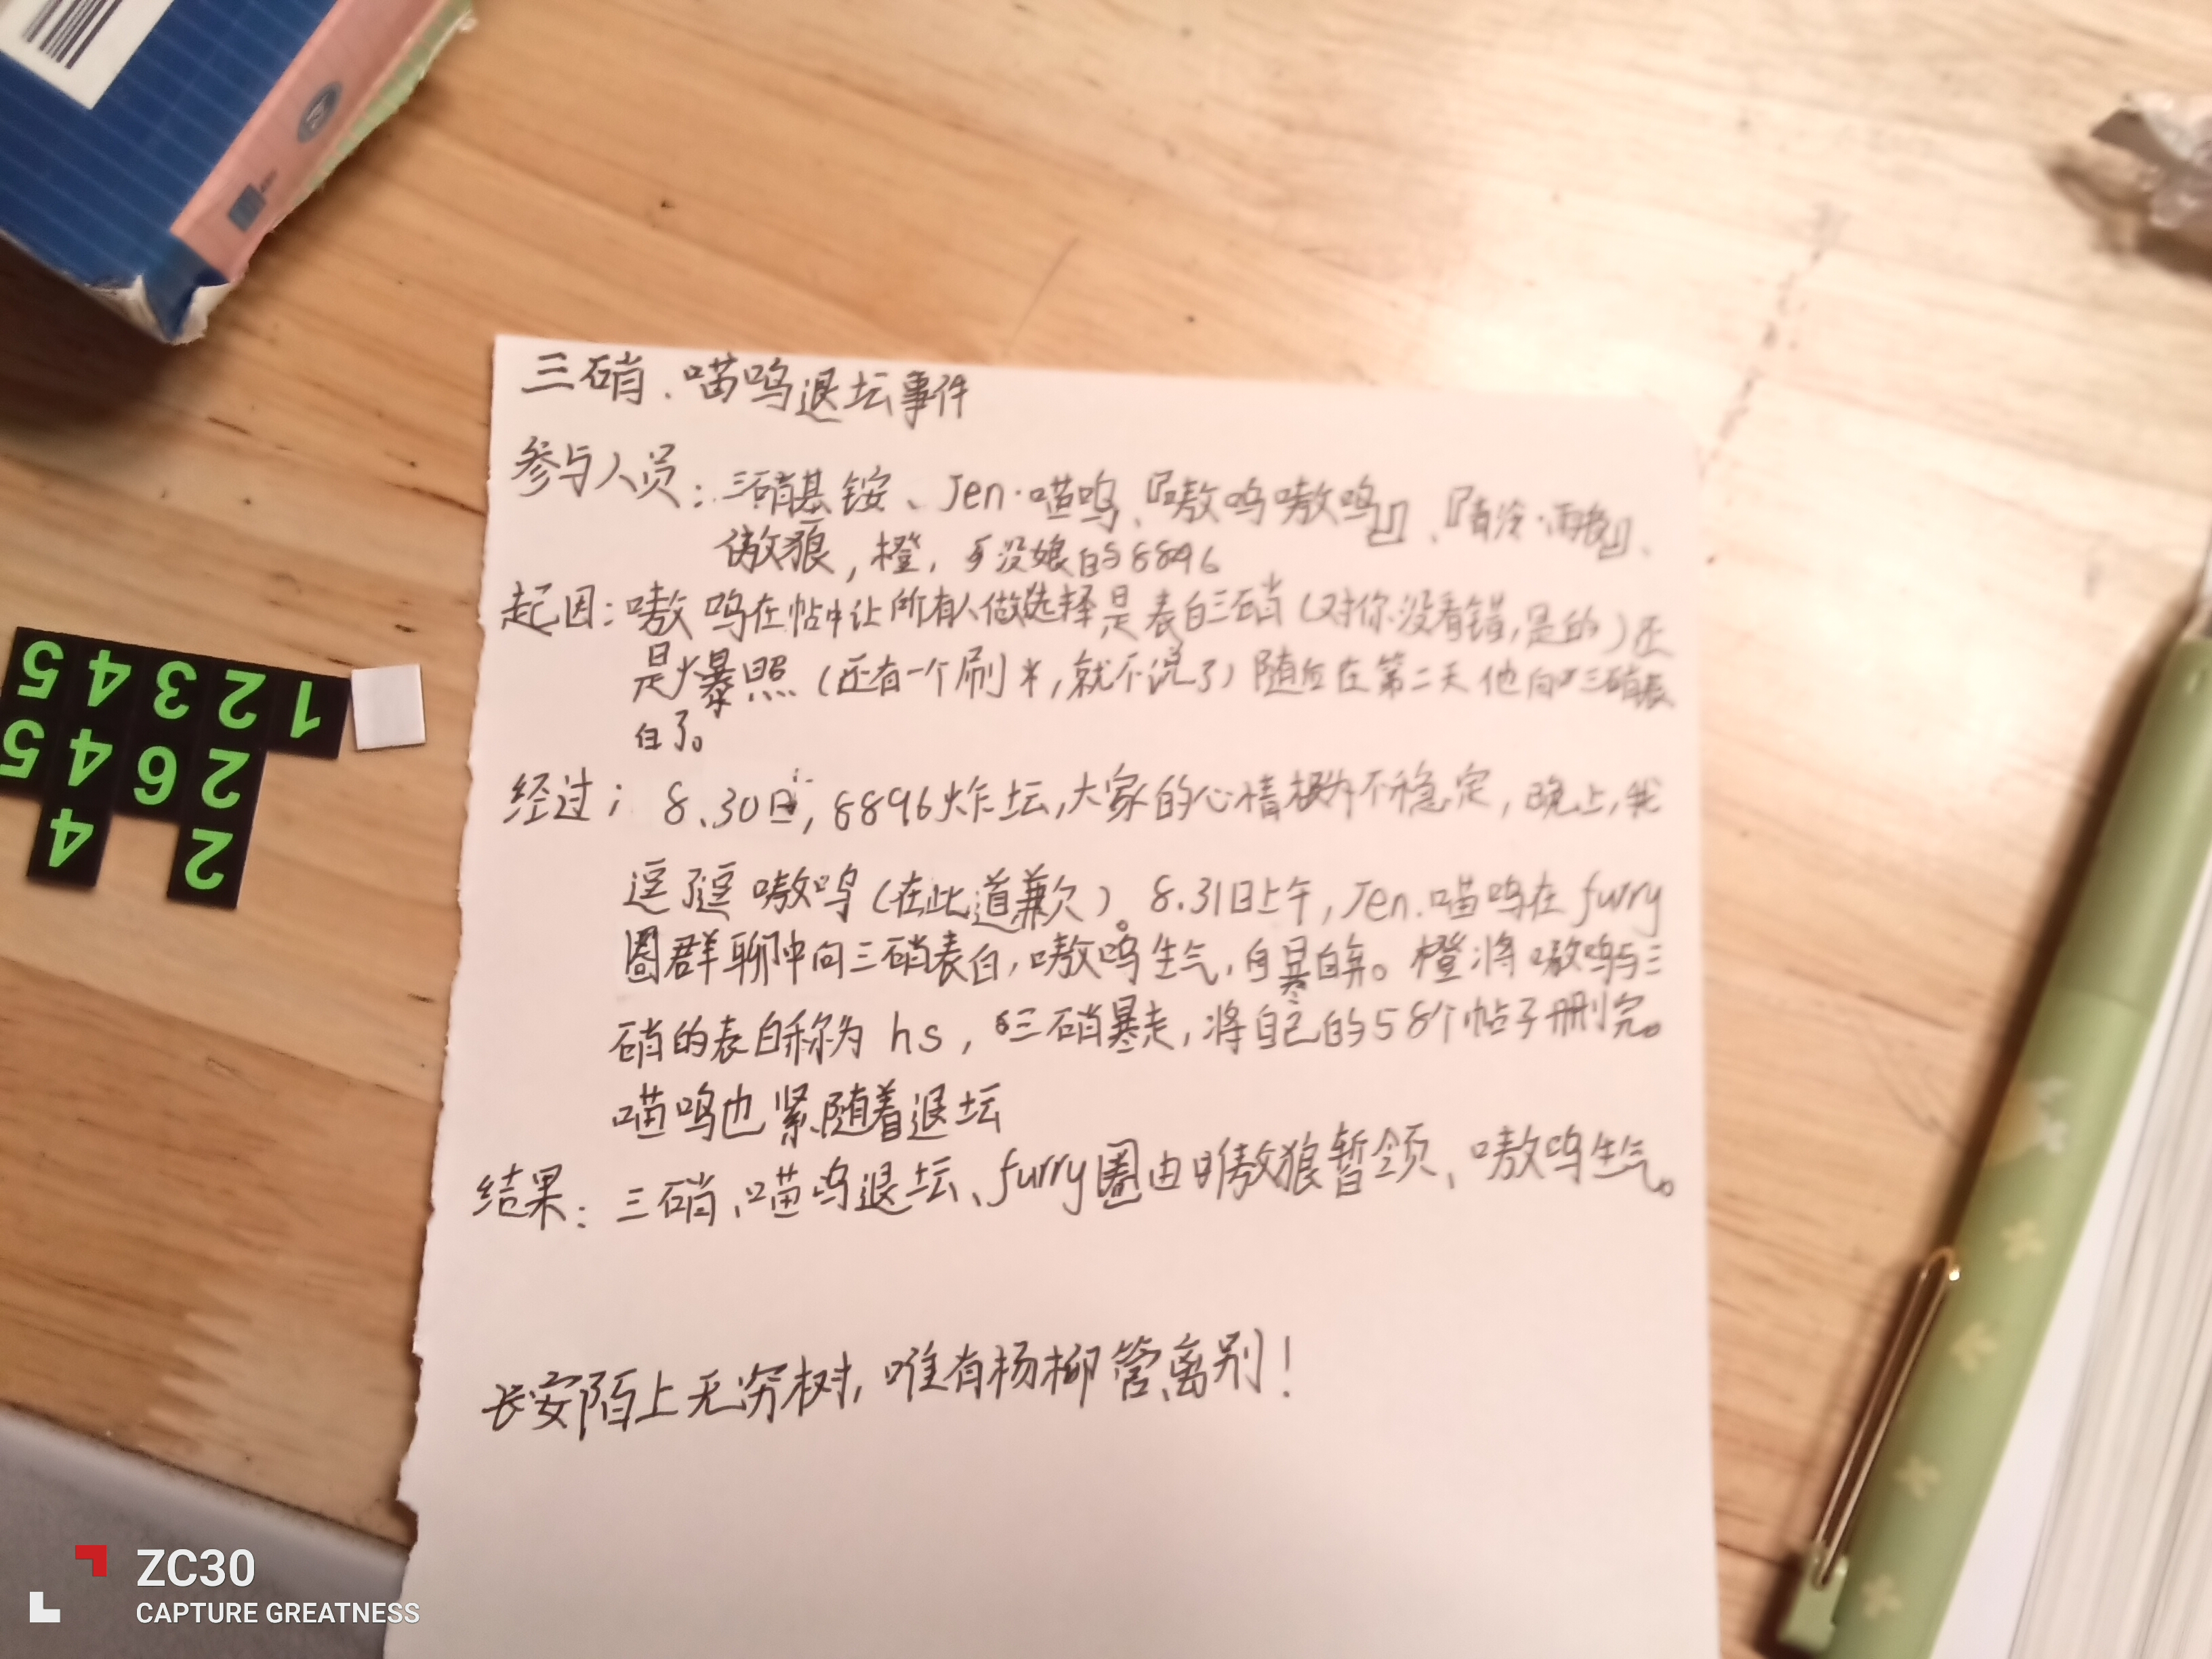 三硝、喵呜退坛事件
参与人员：三硝基铵、Jen·喵呜、『嗷呜嗷呜』、『青冷·雨夜』、
傲狼，橙，没娘的8896
起因：嗷呜在帖中让所有人做选择是表白三硝（对你没看错，是的）还
是爆照（还有一个刷，就不说了）随后在第二天他向三硝表
白了。
经过； 8.30日，8896炸坛，大家的心情极为不稳定，晚上，我
逗了逗嗷呜（在此道歉）。8.31日上午，Jen.喵呜在furry
圈群聊中向三硝表白，嗷呜生气，自暴自弃。橙将嗷呜与三
硝的表白称为hs，三硝暴走，将自己的58个帖子删完。
喵呜也紧随着退坛
结果：三硝、喵呜退坛、furry圈由傲狼暂领、嗷呜生气。
长安陌上无穷树，唯有杨柳管离别！
1 2 3 4 5
2 6 4 5
2 4
ZC30
CAPTURE GREATNESS